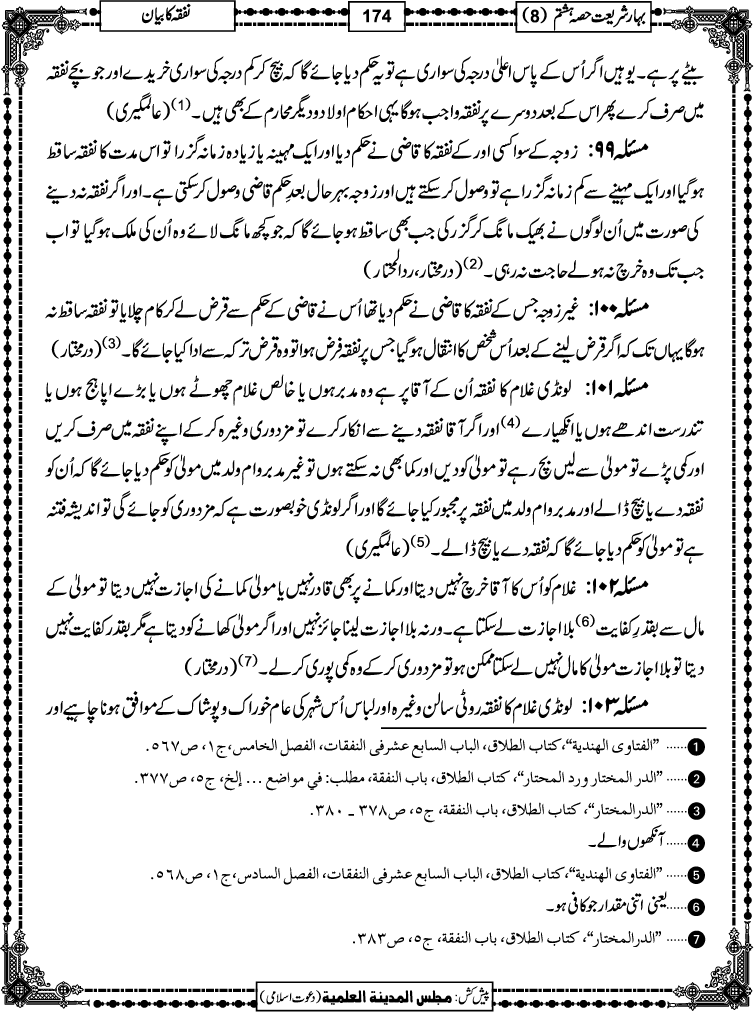 بہارِ شریعت حصہ ہشتم (8)
174
نفقہ کا بیان
بیٹے پر ہے۔ یوہیں اگر اُس کے پاس اعلیٰ درجہ کی سواری ہے تو یہ حکم دیا جائے گا کہ بیچ کر کم درجہ کی سواری خریدے اور جو بچے نفقہ
میں صرف کرے پھر اس کے بعد دوسرے پر نفقہ واجب ہوگا یہی احکام اولاد و دیگر محارم کے بھی ہیں۔(1) (عالمگیری)
مسئلہ ۹۹: زوجہ کے سوا کسی اور کے نفقہ کا قاضی نے حکم دیا اور ایک مہینہ یا زیادہ زمانہ گزرا تو اس مدت کا نفقہ ساقط
ہوگیا اور ایک مہینے سے کم زمانہ گزرا ہے تو وصول کر سکتے ہیں اور زوجہ بہر حال بعدِ حکم قاضی وصول کر سکتی ہے۔ اور اگر نفقہ نہ دینے
کی صورت میں اُن لوگوں نے بھیک مانگ کر گزر کی جب بھی ساقط ہو جائے گا کہ جو کچھ مانگ لائے وہ اُن کی ملک ہوگیا تو اب
جب تک وہ خرچ نہ ہولے حاجت نہ رہی۔(2) (درمختار، ردالمحتار)
مسئلہ ۱۰۰: غیر زوجہ جس کے نفقہ کا قاضی نے حکم دیا تھا اُس نے قاضی کے حکم سے قرض لے کر کام چلایا تو نفقہ ساقط نہ
ہوگا یہاں تک کہ اگر قرض لینے کے بعد اُس شخص کا انتقال ہوگیا جس پر نفقہ فرض ہوا تو وہ قرض ترکہ سے ادا کیا جائے گا۔(3) (درمختار)
مسئلہ ۱۰۱: لونڈی غلام کا نفقہ اُن کے آقا پر ہے وہ مدبر ہوں یا خالص غلام چھوٹے ہوں یا بڑے اپاہج ہوں یا
تندرست اندھے ہوں یا انکھیارے(4) اور اگر آقا نفقہ دینے سے انکار کرے تو مزدوری وغیرہ کر کے اپنے نفقہ میں صرف کریں
اور کمی پڑے تو مولیٰ سے لیں بچ رہے تو مولیٰ کو دیں اور کما بھی نہ سکتے ہوں تو غیر مدبر و ام ولد میں مولیٰ کو حکم دیا جائے گا کہ اُن کو
نفقہ دے یا بیچ ڈالے اور مدبر و ام ولد میں نفقہ پر مجبور کیا جائے گا اور اگر لونڈی خوبصورت ہے کہ مزدوری کو جائے گی تو اندیشہ فتنہ
ہے تو مولیٰ کو حکم دیا جائے گا کہ نفقہ دے یا بیچ ڈالے۔(5) (عالمگیری)
مسئلہ ۱۰۲: غلام کو اُس کا آقا خرچ نہیں دیتا اور کمانے پر بھی قادر نہیں یا مولیٰ کمانے کی اجازت نہیں دیتا تو مولیٰ کے
مال سے بقدرِ کفایت(6) بلا اجازت لے سکتا ہے۔ ورنہ بلا اجازت لینا جائز نہیں اور اگر مولیٰ کھانے کو دیتا ہے مگر بقدر کفایت نہیں
دیتا تو بلا اجازت مولیٰ کا مال نہیں لے سکتا ممکن ہو تو مزدوری کر کے وہ کمی پوری کرلے۔(7) (درمختار)
مسئلہ ۱۰۳: لونڈی غلام کا نفقہ روٹی سالن وغیرہ اور لباس اُس شہر کی عام خوراک و پوشاک کے موافق ہونا چاہیے اور
1 ...... ”الفتاوی الهندية“، کتاب الطلاق، الباب السابع عشر فی النفقات، الفصل الخامس، ج۱، ص۵۶۷.
2 ...... ”الدر المختار ورد المحتار“، کتاب الطلاق، باب النفقة، مطلب: في مواضع ... إلخ، ج۵، ص۳۷۷.
3 ...... ”الدرالمختار“، کتاب الطلاق، باب النفقة، ج۵، ص۳۷۸ ـ ۳۸۰.
4 ...... آنکھوں والے۔
5 ...... ”الفتاوی الهندية“، کتاب الطلاق، الباب السابع عشر فی النفقات، الفصل السادس، ج۱، ص۵۶۸.
6 ...... یعنی اتنی مقدار جو کافی ہو۔
7 ...... ”الدرالمختار“، کتاب الطلاق، باب النفقة، ج۵، ص۳۸۳.
پیش کش: مجلس المدینة العلمیة (دعوتِ اسلامی)